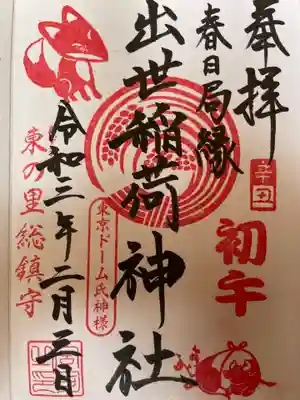 奉拝
春日局縁
初午
出世稲荷神社
東京ドーム氏神様
令和三年二月三日
東の里総鎮守